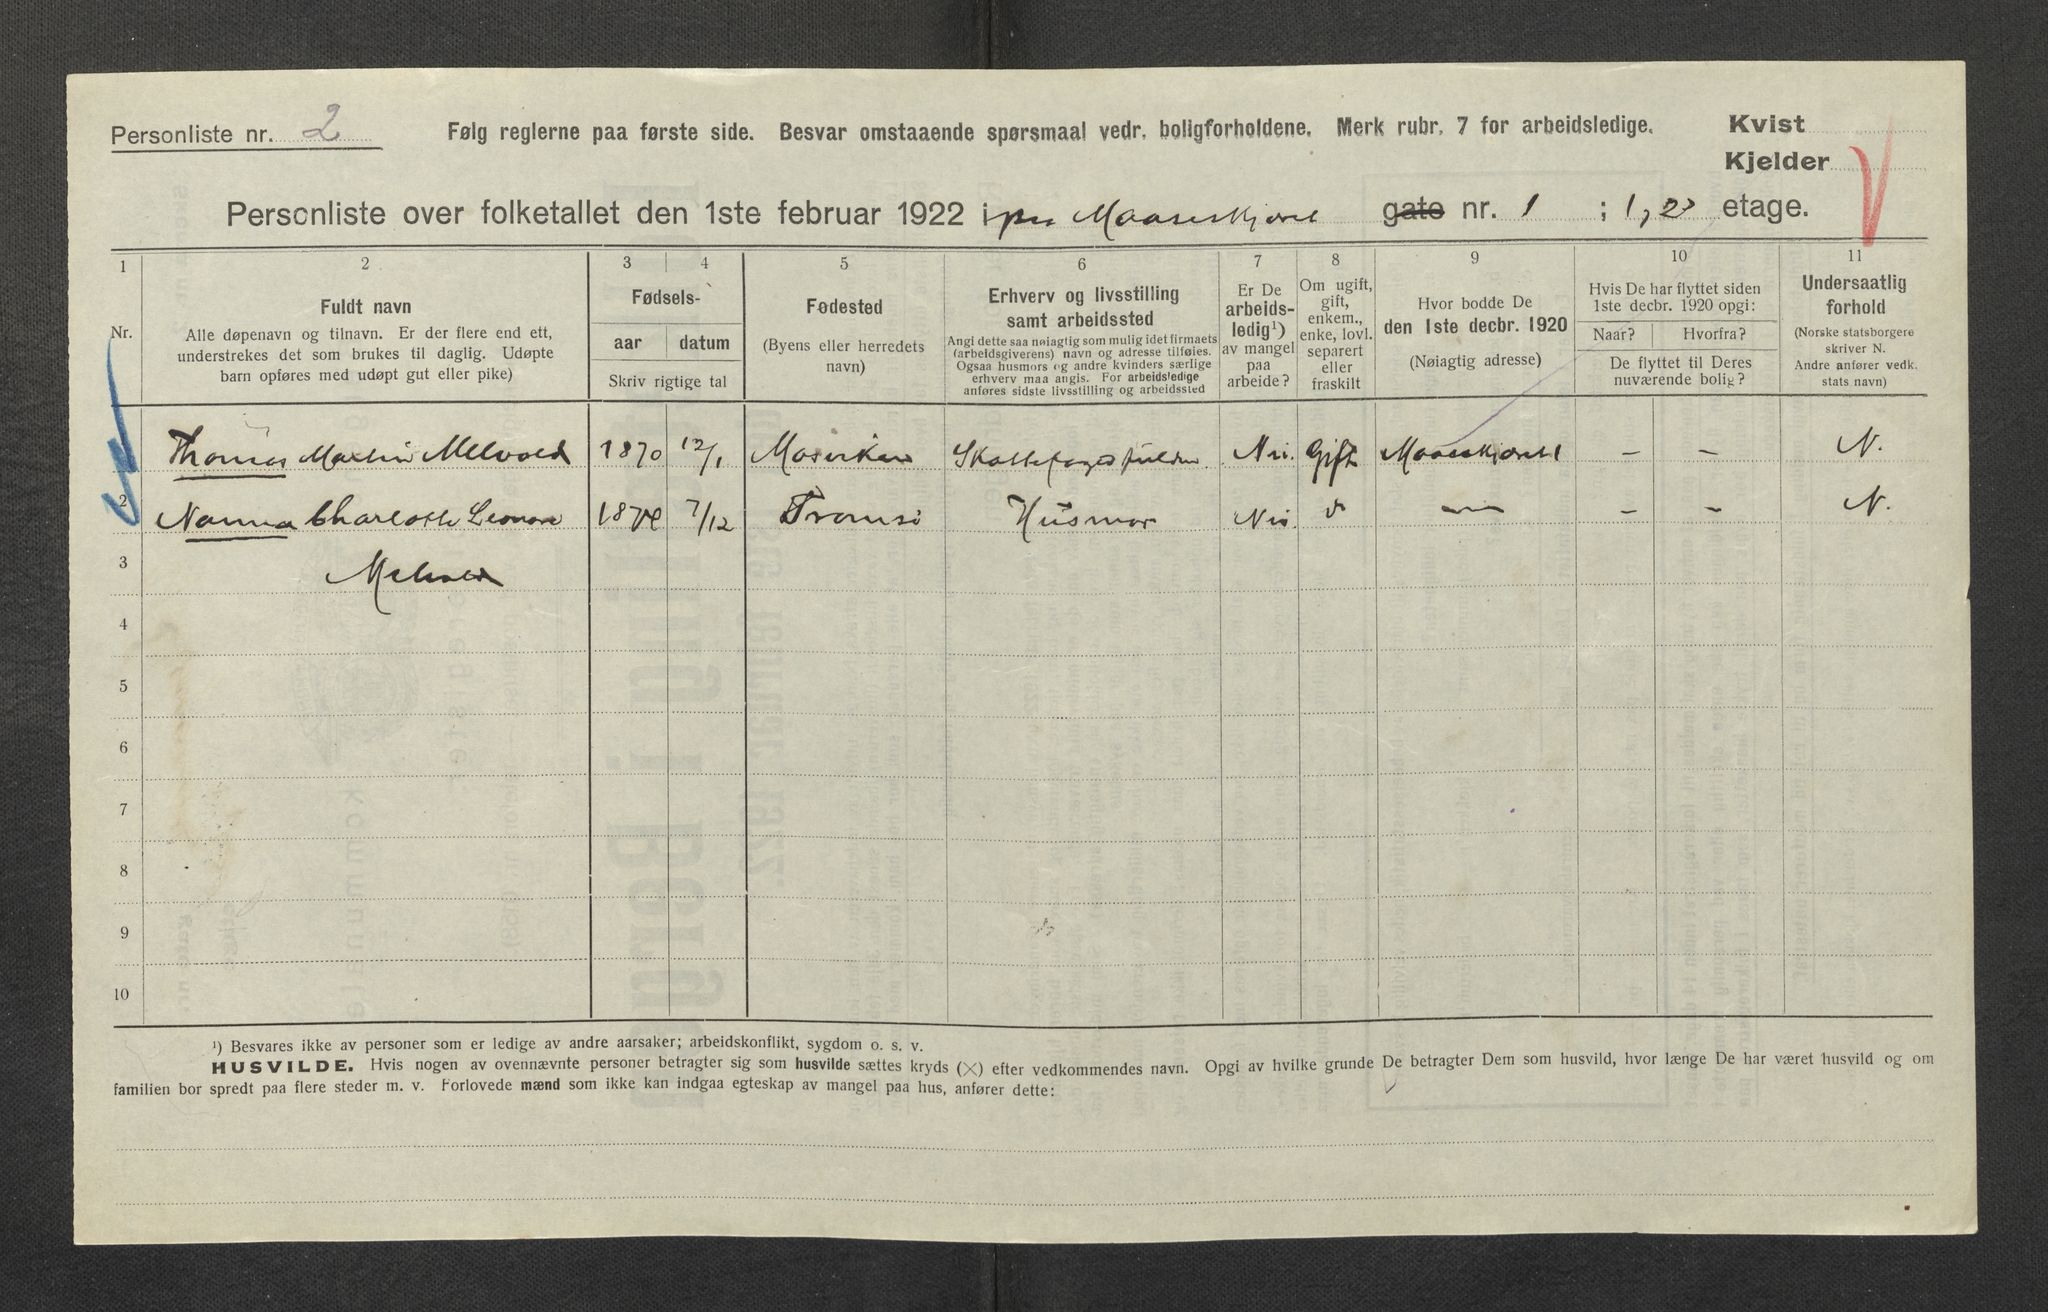 Personliste nr. 2
Følg reglerne paa første side. Besvar omstaaende spørsmaal vedr. boligforholdene. Merk rubr. 7 for arbeidsledige.
Kvist
Kjelder
Personliste over folketallet den 1ste februar 1922 i Maaseskjæret gate nr. 1 ; 1, 2 etage.
1 2 3 4 5 6 7 8 9 10 11
Nr.
Fuldt navn
Alle døpenavn og tilnavn. Er der flere end ett,
understrekes det som brukes til daglig. Udøpte
barn opføres med udøpt gut eller pike)
Fødsels-
aar datum
Skriv rigtige tal
Fødested
(Byens eller herredets
navn)
Erhverv og livsstilling
samt arbeidssted
Angi dette saa nøiagtig som mulig idet firmaets
(arbeidsgiverens) navn og adresse tilføies.
Ogsaa husmors og andre kvinders særlige
erhverv maa angis. For arbeidsledige
anføres sidste livsstilling og arbeidssted
Er De
arbeids-
ledig¹)
av mangel
paa
arbeide?
Om ugift,
gift,
enkem.,
enke, lovl.
separert
eller
fraskilt
Hvor bodde De
den 1ste decbr. 1920
(Nøiagtig adresse)
Hvis De har flyttet siden
1ste decbr. 1920 opgi:
Naar? Hvorfra?
De flyttet til Deres
nuværende bolig?
Undersaatlig
forhold
(Norske statsborgere
skriver N.
Andre anfører vedk.
stats navn)
Thomas Martin Melvold 1870 12/1 Nei. Gift Maaseskjæret 1 – – N.
2 Nanna Charlotte Leonore 7/12 Tromsø Husmor Nei – – – N.
3 Melvold
4
5
6
7
8
9
10
¹) Besvares ikke av personer som er ledige av andre aarsaker; arbeidskonflikt, sygdom o. s. v.
HUSVILDE. Hvis nogen av ovennævnte personer betragter sig som husvilde sættes kryds (×) efter vedkommendes navn. Opgi av hvilke grunde De betragter Dem som husvild, hvor længe De har været husvild og om
familien bor spredt paa flere steder m. v. Forlovede mænd som ikke kan indgaa egteskap av mangel paa hus, anfører dette: